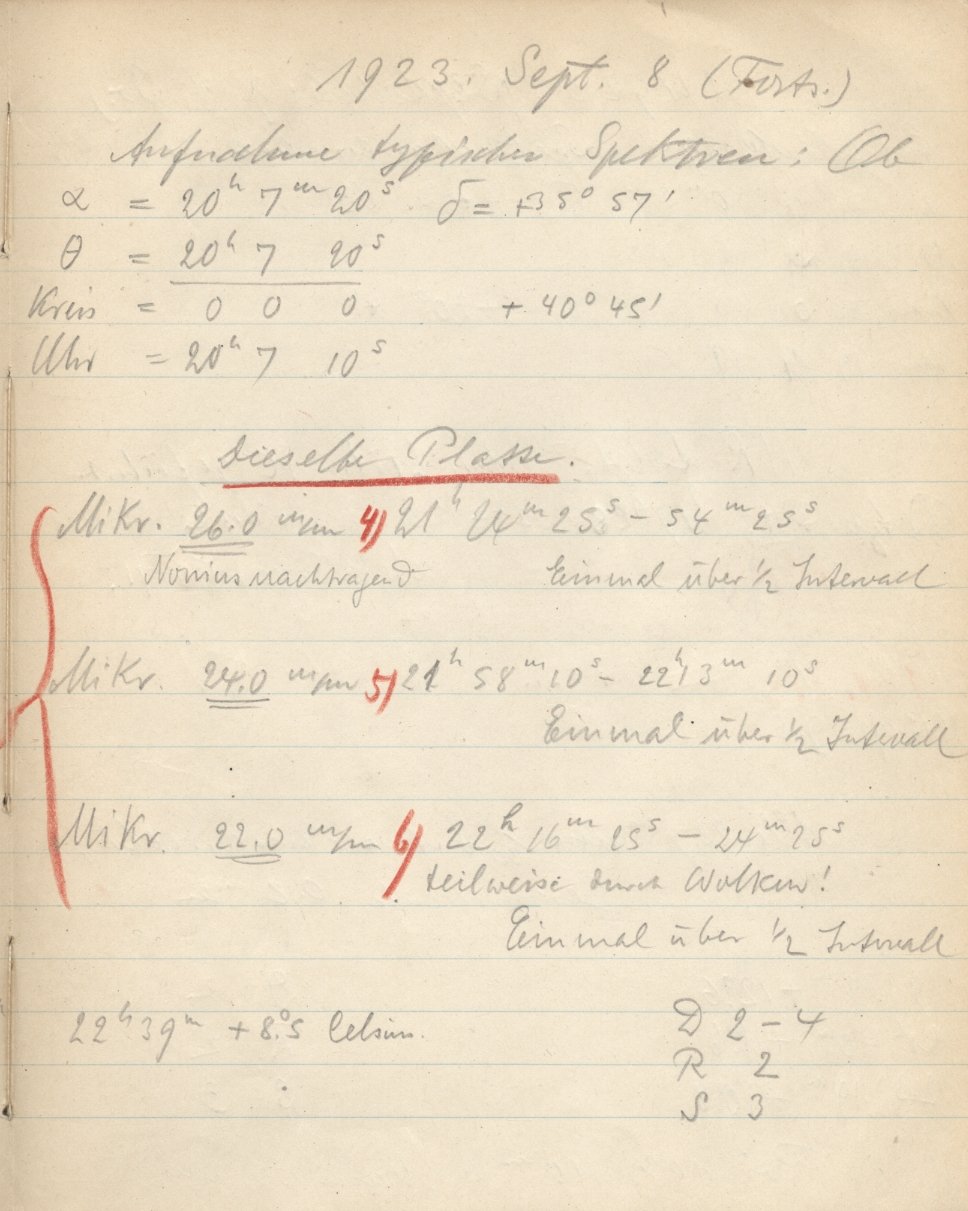 1923. Sept. 8 (Forts.)
Aufnahme typischer Spektren: Ob
α = 20h 7m 20s δ = +35° 57'
θ = 20h 7 20s
Kreis = 0 0 0 + 40° 45'
Uhr = 20h 7 10s
Dieselbe Platte.
Mikr. 26.0 m/m 4) 21h 24m 25s – 54m 25s
Nonius nachtragend Einmal über 1/2 Intervall
Mikr. 24.0 m/m 5) 21h 58m 10s – 22h 13m 10s
Einmal über 1/2 Intervall
Mikr. 22.0 m/m 6) 22h 16m 25s – 24m 25s
teilweise durch Wolken!
Einmal über 1/2 Intervall
22h 39m + 8.°5 Celsius. D 2 – 4
R 2
S 3